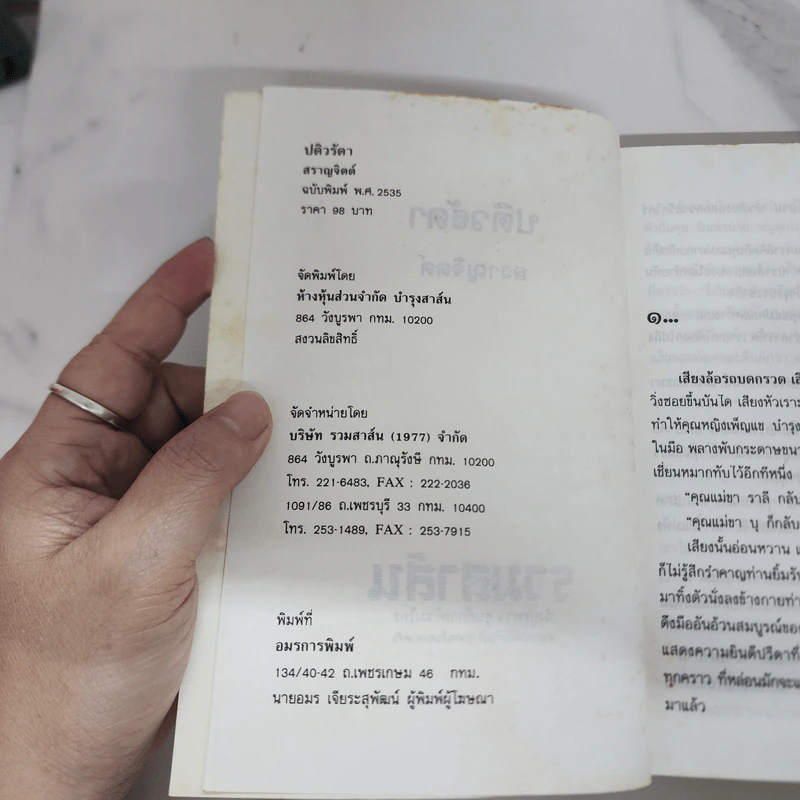 ปติวรัดา
สราญจิตต์
ฉบับพิมพ์ พ.ศ. 2535
ราคา 98 บาท
จัดพิมพ์โดย
ห้างหุ้นส่วนจำกัด บำรุงสาส์น
864 วังบูรพา กทม. 10200
สงวนลิขสิทธิ์
จัดจำหน่ายโดย
บริษัท รวมสาส์น (1977) จำกัด
864 วังบูรพา ถ.ภาณุรังษี กทม. 10200
โทร. 221-6483, FAX : 222-2036
1091/86 ถ.เพชรบุรี 33 กทม. 10400
โทร. 253-1489, FAX : 253-7915
พิมพ์ที่
อมรการพิมพ์
134/40-42 ถ.เพชรเกษม 46 กทม.
นายอมร เจียระสุพัฒน์ ผู้พิมพ์ผู้โฆษณา
๑...
เสียงล้อรถบดกรวด
วิ่งซอยขึ้นบันได เสียงหัวเราะ
ทำให้คุณหญิงเพ็ญแข บำรุง
ในมือ พลางพับกระดาษขนา
เชี่ยนหมากทับไว้อีกทีหนึ่ง
"คุณแม่ขา ราลี กลับ
"คุณแม่ขา บุ ก็กลับ
เสียงนั้นอ่อนหวาน
ก็ไม่รู้สึกรำคาญท่านยิ้มรับ
มาทิ้งตัวนั่งลงข้างกายท่า
ดึงมืออันอ้วนสมบูรณ์ของ
แสดงความยินดีปรีดาที่
ทุกคราว ที่หล่อนมักจะ
มาแล้ว